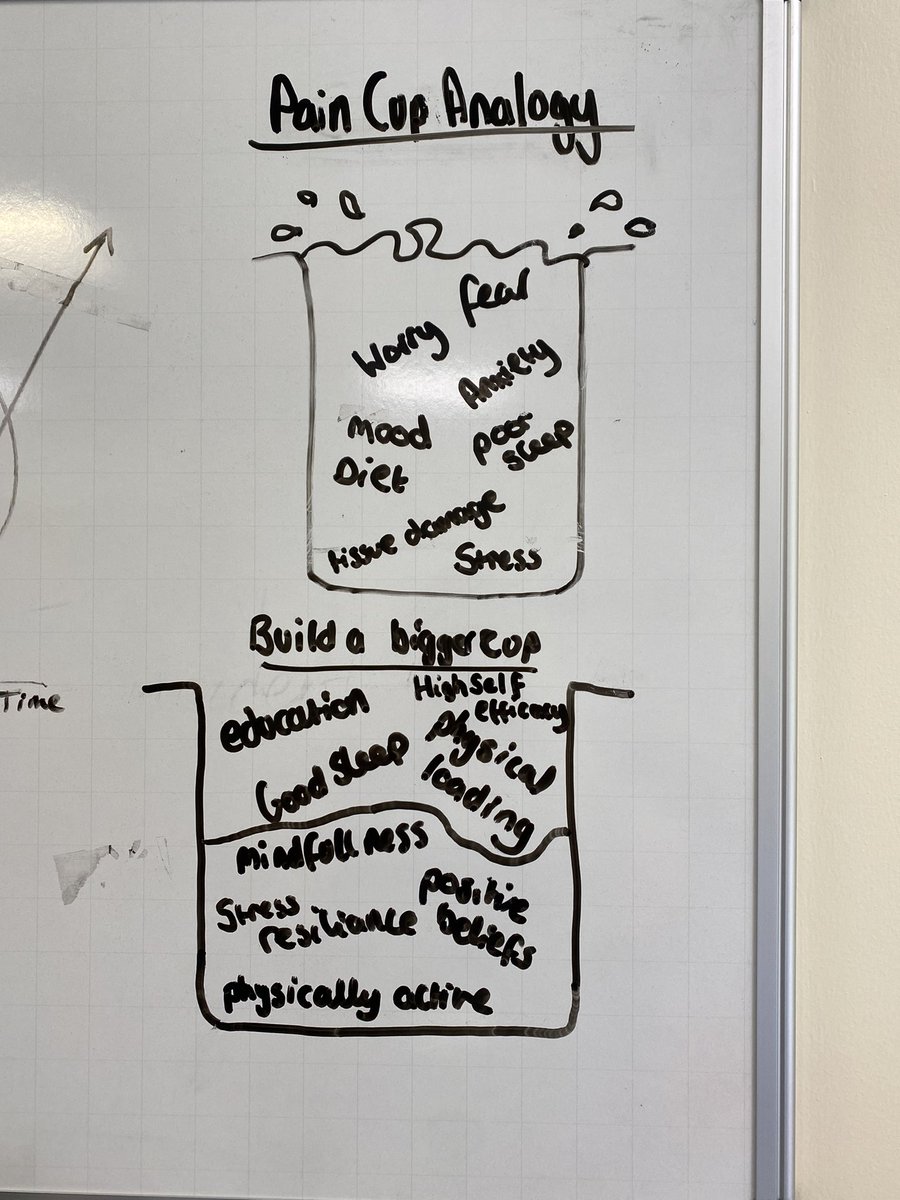 Pain Cup Analogy
fear
Worry
Anxiety
Mood
poor
sleep
Diet
tissue damage
Stress
Build a bigger cup
High self
efficacy
education
physical
loading
Good Sleep
mindfullness
positive
beliefs
Stress
resiliance
physically active
Time